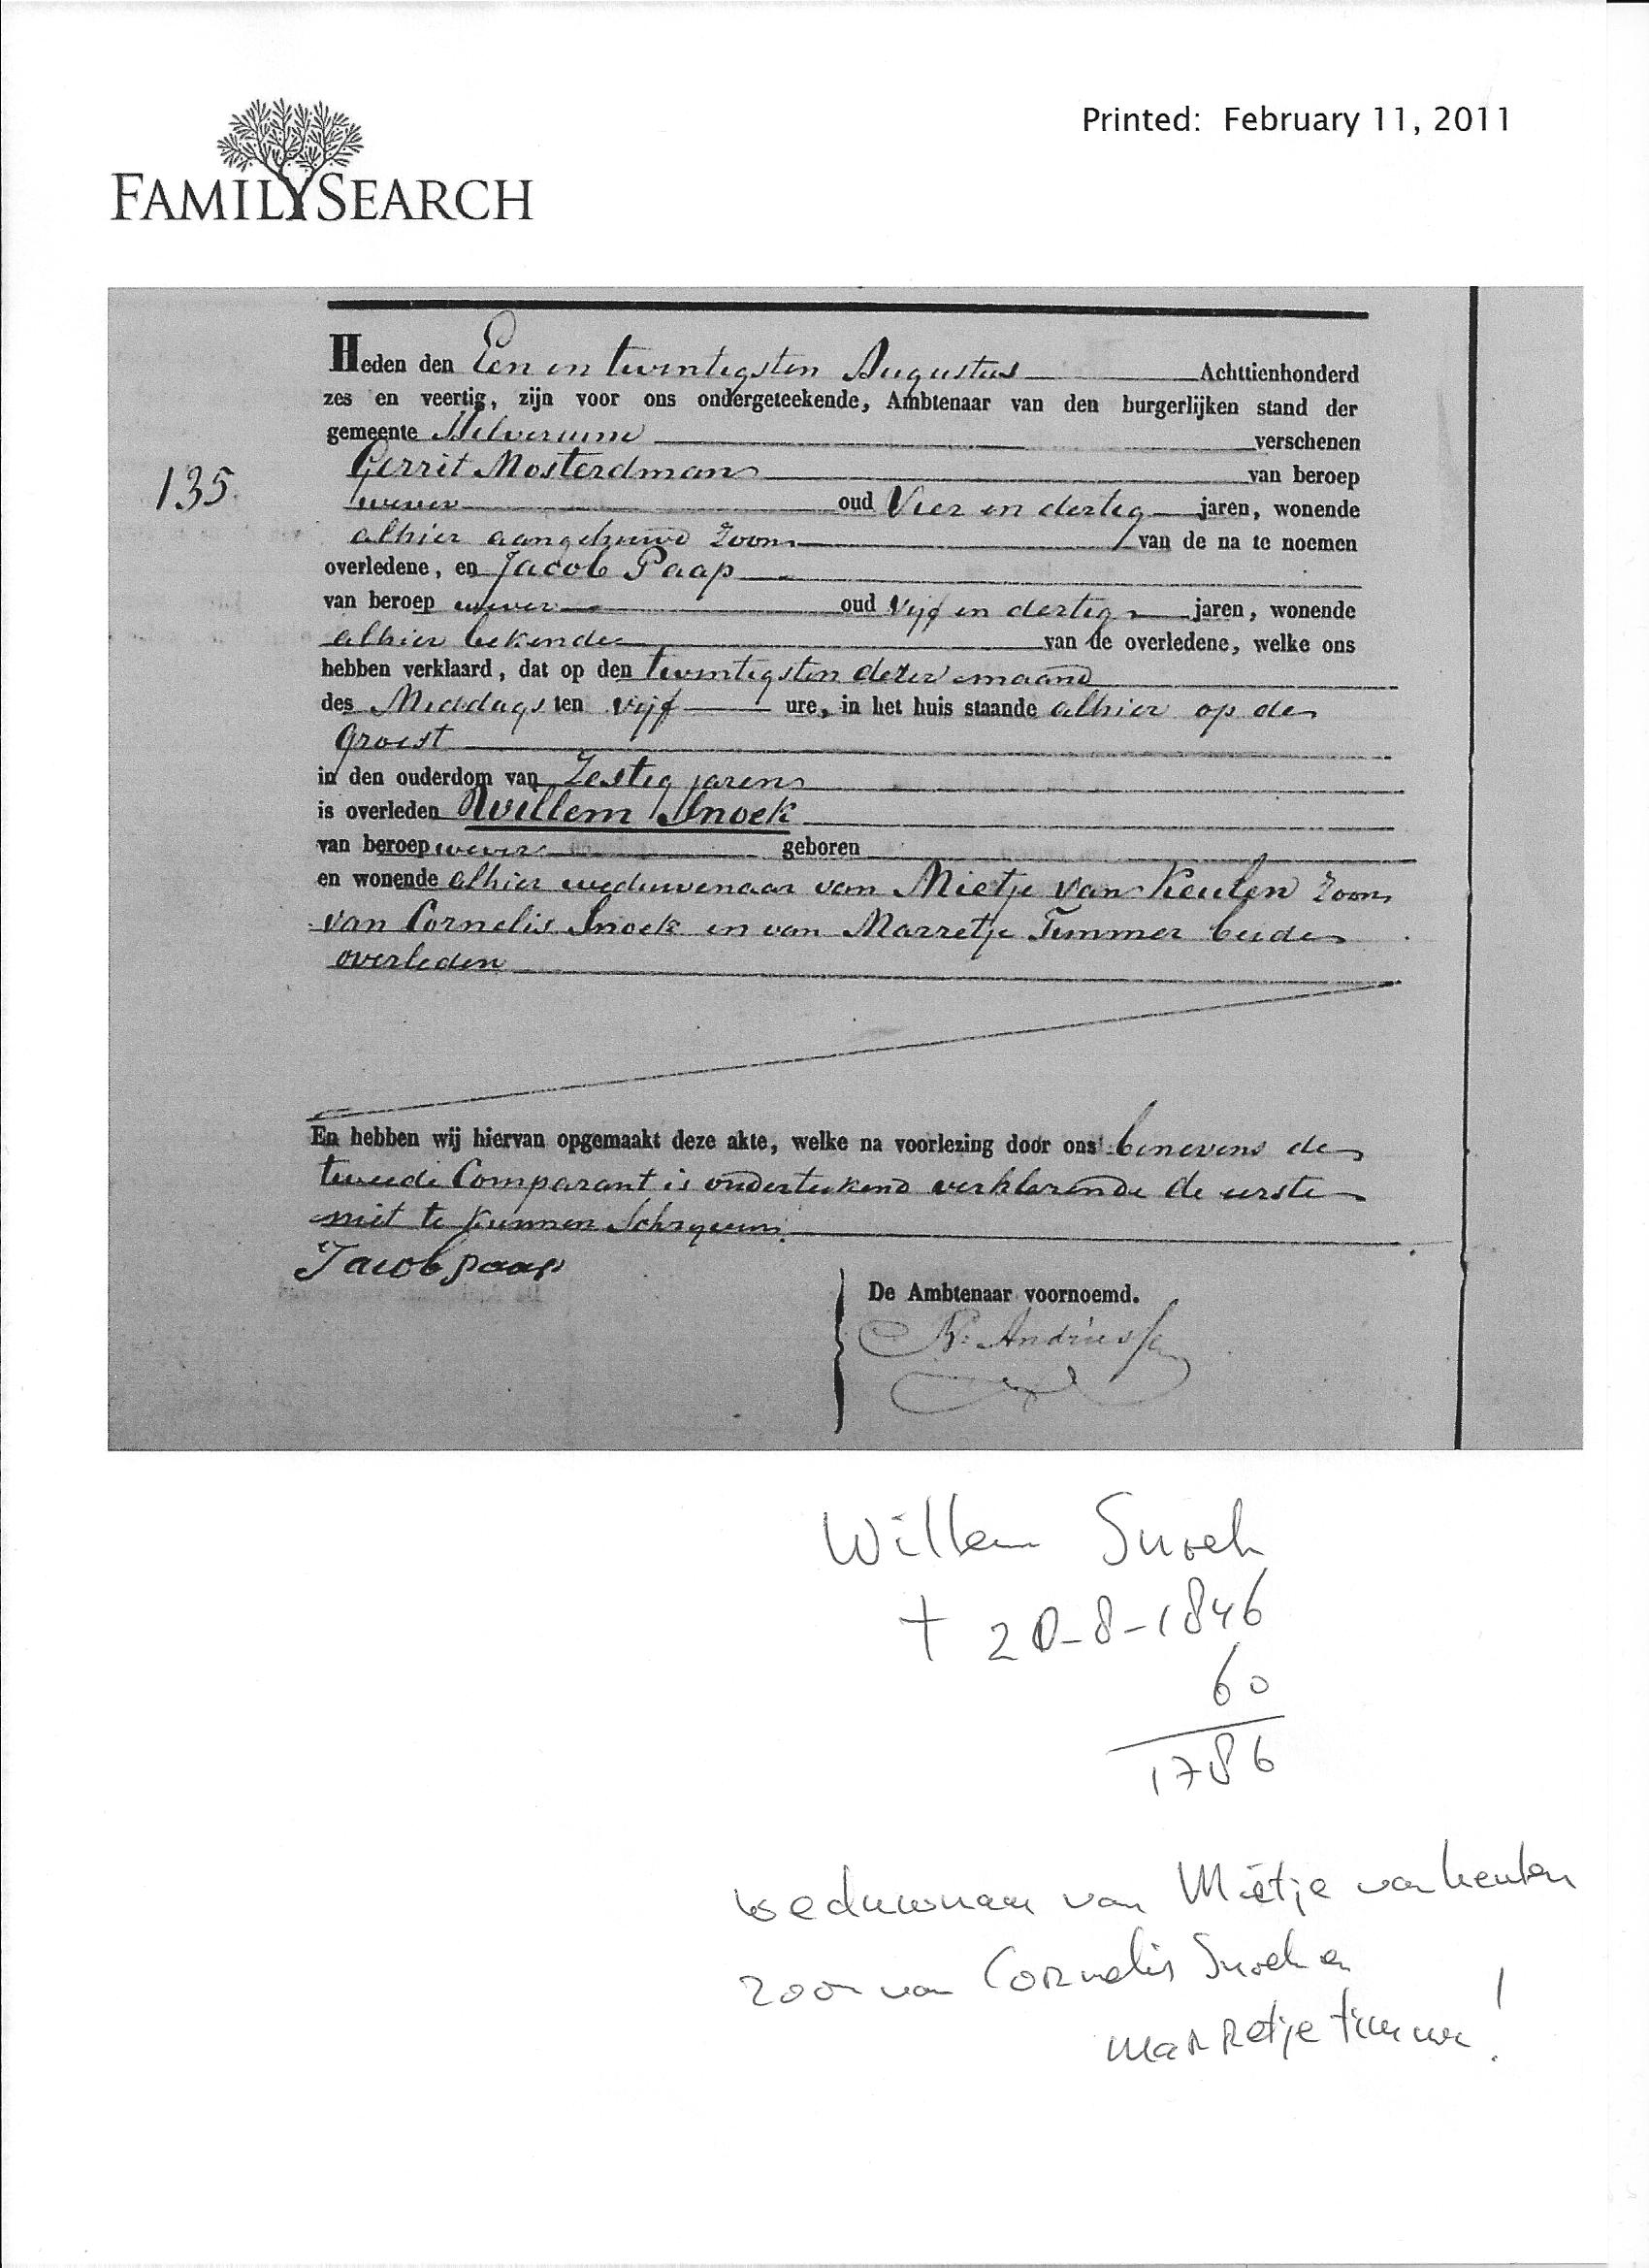 FAMILYSEARCH
Printed: February 11, 2011
Heden den Een en twintigsten Augustus Achttienhonderd
zes en veertig, zijn voor ons ondergeteekende, Ambtenaar van den burgerlijken stand der
gemeente Hilversum verschenen
135. Gerrit Mosterdman van beroep
wever oud Vier en dertig jaren, wonende
alhier aangehuwd Zoon van de na te noemen
overledene, en Jacob Paap
van beroep wever oud Vijf en dertig jaren, wonende
alhier bekende van de overledene, welke ons
hebben verklaard, dat op den twintigsten dezer maand
des Middags ten vijf ure, in het huis staande alhier op de
Groest
in den ouderdom van Zestig jaren
is overleden Willem Snoek
van beroep wever geboren
en wonende alhier weduwenaar van Mietje van Keulen Zoon
van Cornelis Snoek en van Marretje Timmer beide
overleden
En hebben wij hiervan opgemaakt deze akte, welke na voorlezing door ons benevens de
tweede Comparant is onderteekend verklarende de eerste
niet te kunnen Schryven.
Jacob paap
De Ambtenaar voornoemd.
Andriessen
Willem Snoek
† 20-8-1846
60
1786
weduwnaar van Mietje van keulen
zoon van Cornelis Snoek en
marretje timmer!